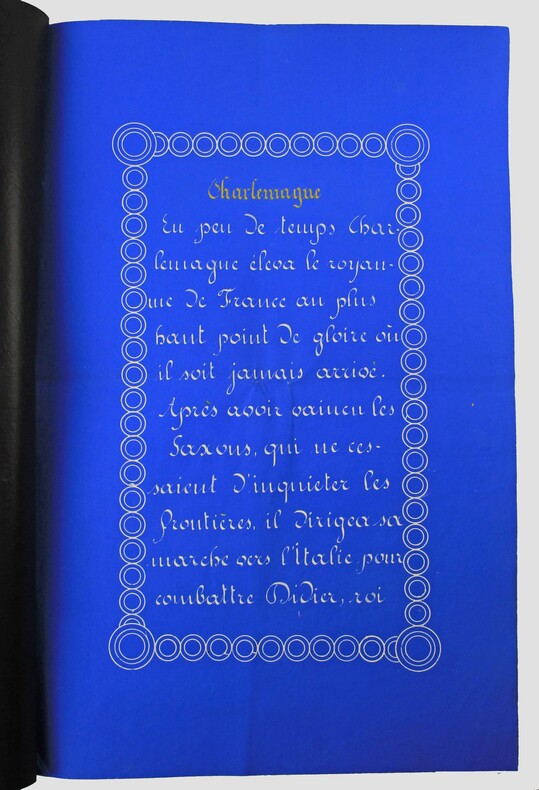 Charlemagne
En peu de temps Char-
lemagne éleva le royau-
me de France au plus
haut point de gloire où
il soit jamais arrivé.
Après avoir vaincu les
Saxons, qui ne ces-
saient d'inquieter les
frontières, il dirigea sa
marche vers l'Italie pour
combattre Didier, roi